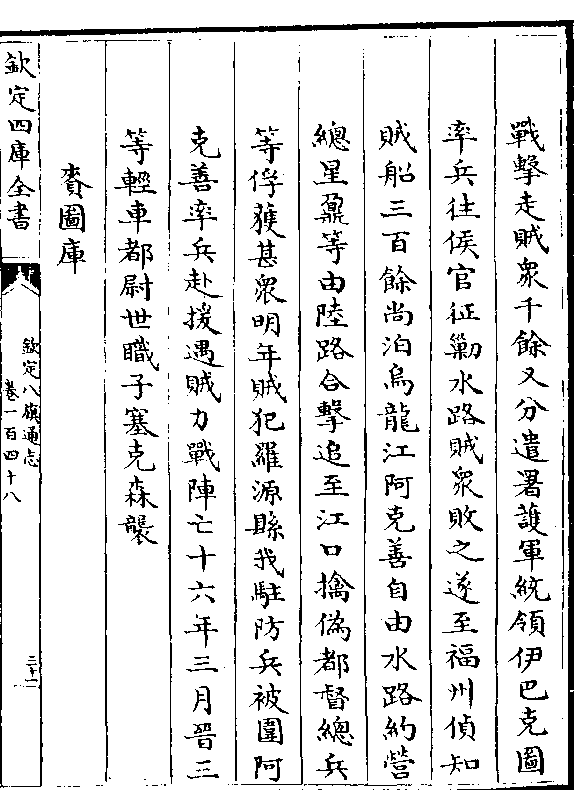 戰擊走賊衆千餘又分遣署護軍統領伊巴克圖
率兵往侯官征勦水路賊衆敗之遂至福州偵知
賊船三百餘尚泊烏龍江阿克善自由水路約營
總星鼐等由陸路合擊追至江口擒偽都督總兵
等俘獲甚衆明年賊犯羅源縣我駐防兵被圍阿
克善率兵赴援遇賊力戰陣亡十六年三月晉三
等輕車都尉世職子塞克森襲
賚圖庫
欽定四庫全書
欽定八旗通志
卷一百四十八
三十一